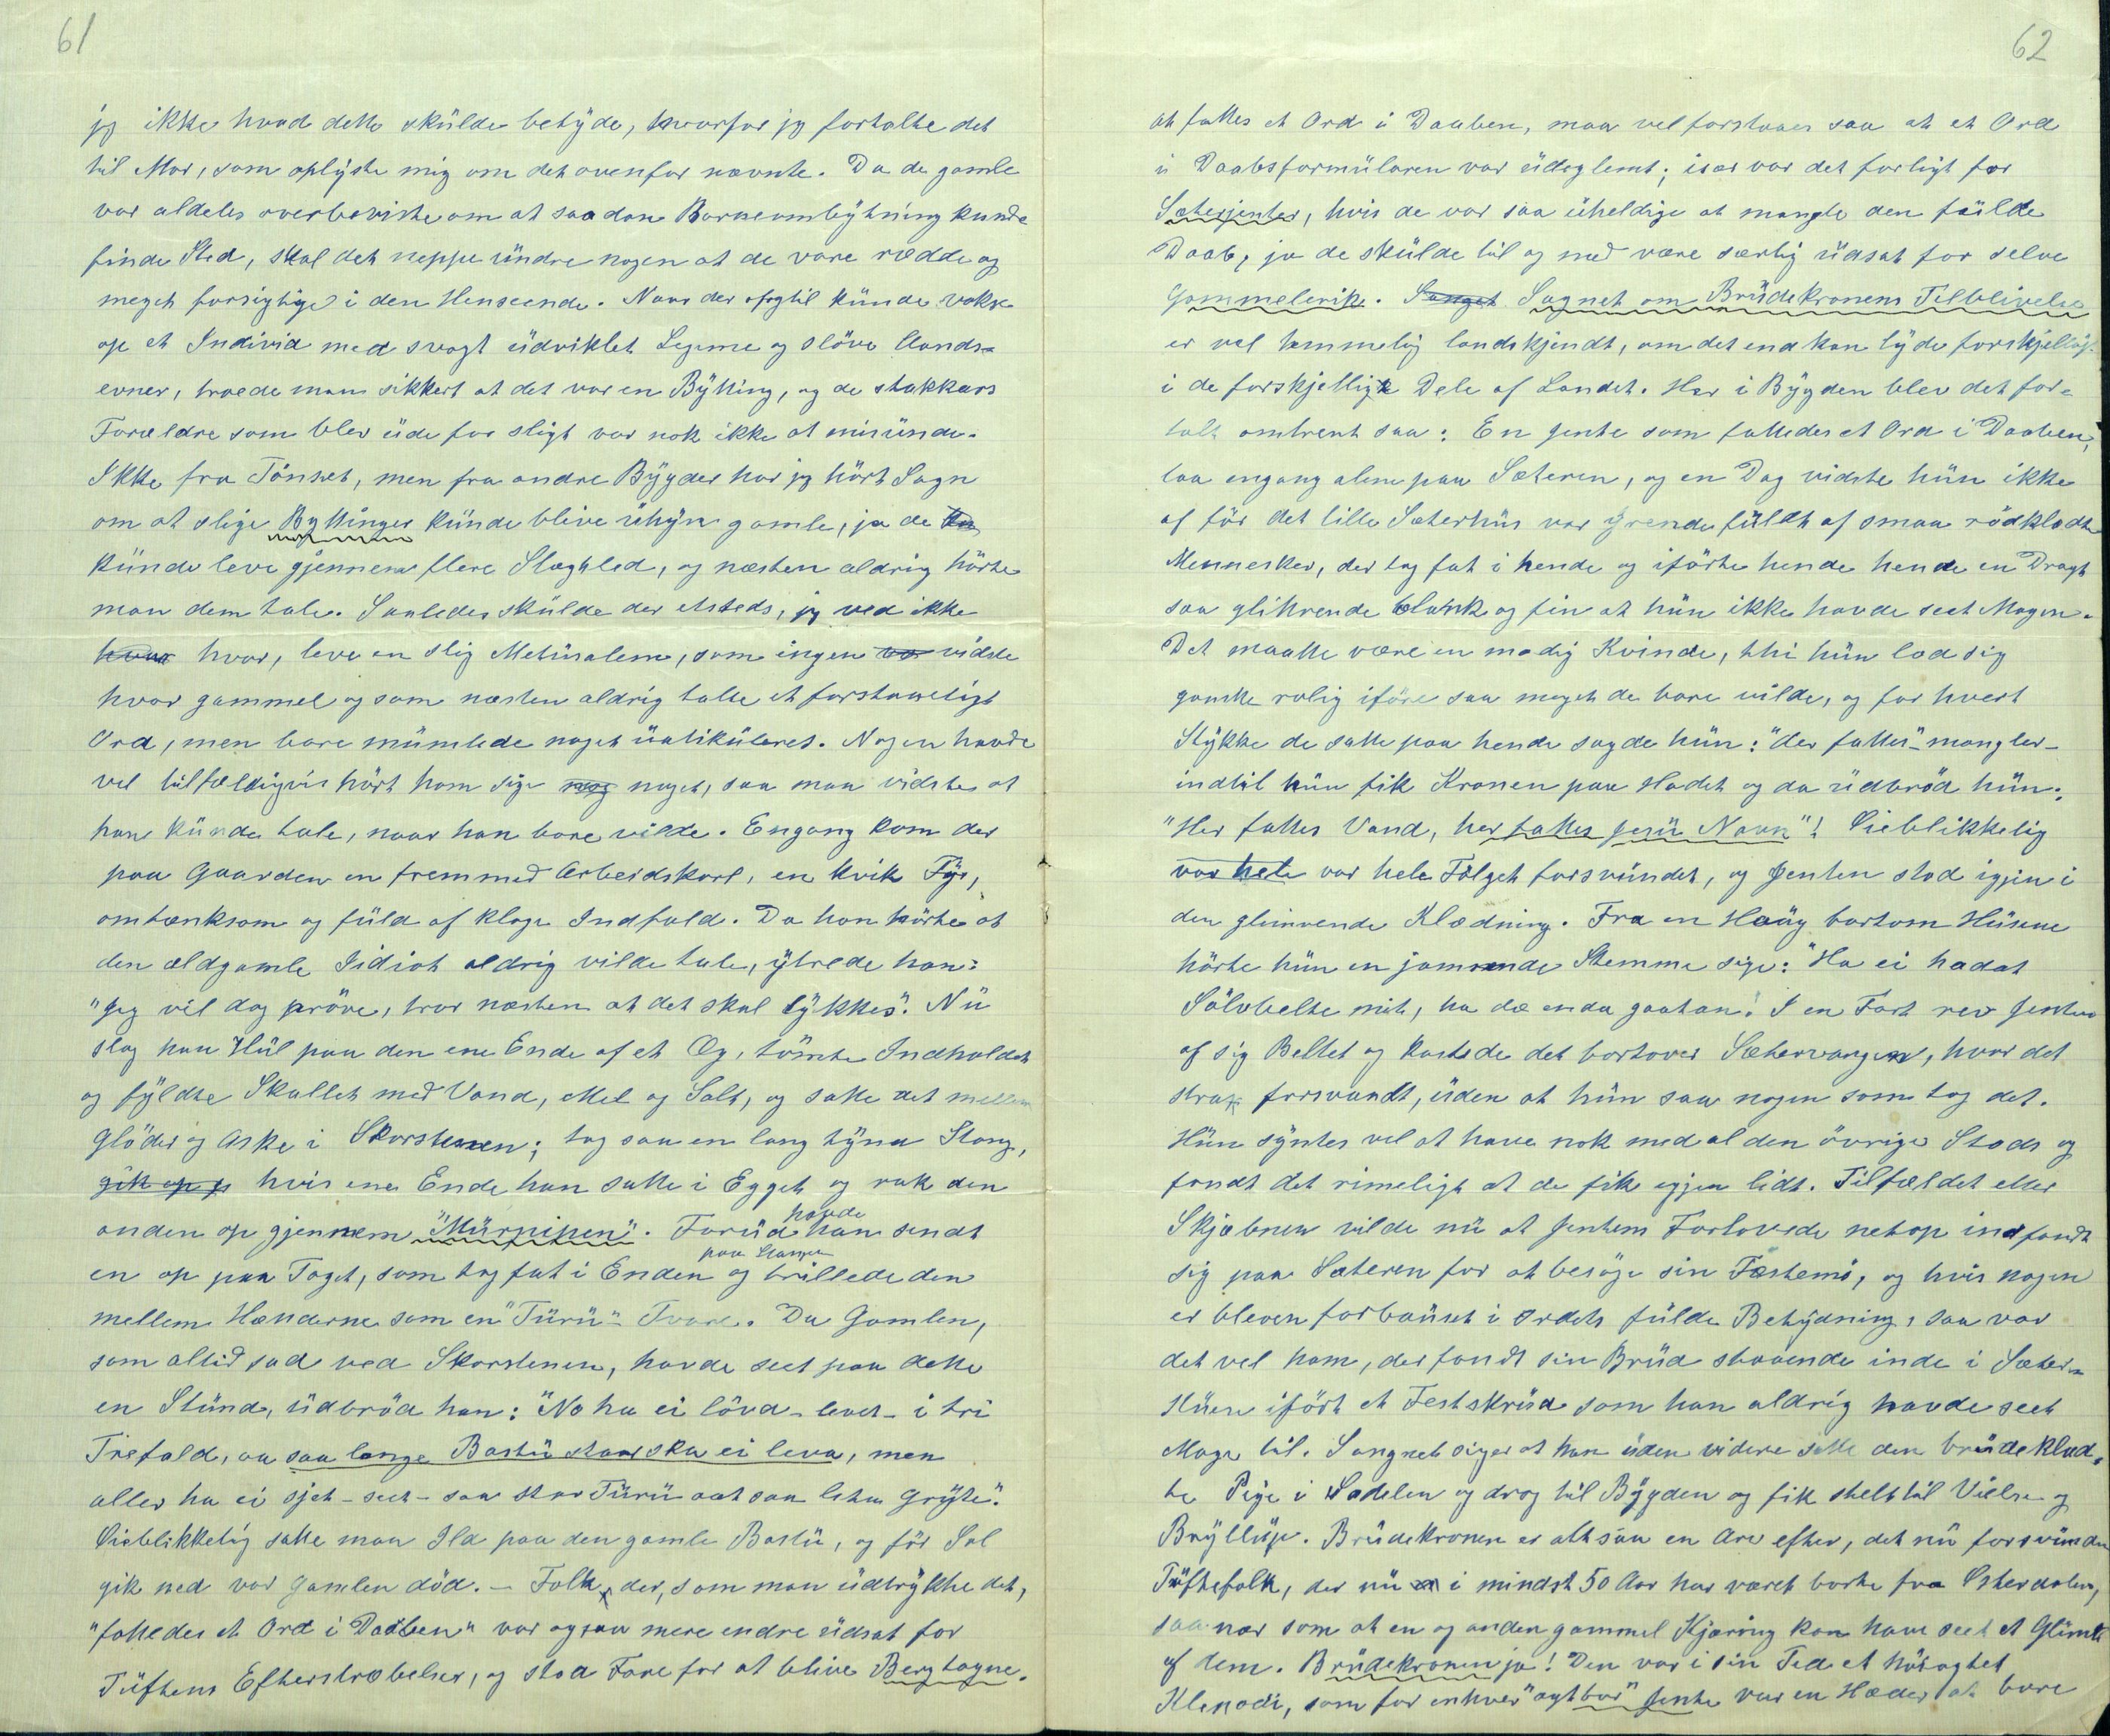 61
jg ikke hvad dette skulde betyde, hvorfor jg fortalte det
til Mor, som oplyste mig om det ovenfor nævnte. Da de gamle
var aldeles overbeviste om at saadan Barneombytning kunde
finde Sted, skal det neppe undre nogen at de vare rædde og
meget forsigtige i den Henseende. Naar der ofgtil kunde vokse
op et Individ med svagt udviklet Legeme og slöve Aands-
evner, troede man sikkert at det var en Bytting, og de stakkars
Forældre som blev ude for sligt var nok ikke at misunde.
Ikke fra Tönset, men fra andre Bygder har jg hört Sagn
om at slige Byttinger kunde blive uhyre gamle, ja de
kunde leve gjennem flere Slægtled, og næsten aldrig hörte
man dem tale. Saaledes skulde der etsteds, jg ved ikke
hvor, leve en slig Metusalem, som ingen vidste
hvor gammel og som næsten aldrig talte et forstaaeligt
Ord, men bare mumlede noget uatikuleret. Nogen havde
vel tilfældigvis hört ham sige noget, saa man vidste at
han kunde tale, naar han bare vilde. Engang kom der
paa Gaarden en fremmed Arbeidskarl, en kvik Fyr,
omtænksom og fuld af kloge Indfald. Da han hörte at
den ældgamle Isdiot aldrig vilde tale, ytrede han:
"Jeg vil dog pröve, tror næsten at det skal lykkes". Nu
slog han Hul paa den ene Ende af et Æg, tömte Indholdet
og fyldte Skallet med Vand, Mel og Salt, og satte det mellem
Glöder og Aske i Skorstenen; tog saa en lang tynd Stang,
hvis ene Ende han satte i Egget og rak den
anden op gjennem "Mürpipen". Forud havde han sendt
en op paa Taget, som tog fat i Enden paa Stangen og trillede den
mellem Hænderne som en "Türü"- Tvare. Da Gamlen,
som altid sad ved Skorstenen, havde seet paa dette
en Stund, udbröd han: "No ha ei lövd - levet - i tri
Trefald, aa saa lange Bastü staar ska ei leva, men
aller ha ei sjet - seet - saa stor Türü aat saa liten Gryte".
Öieblikkelig satte man Ild paa den gamle Bastu, og för Sol
gik ned var Gamlen död. - Folk, der, som man udtrykte det,
"fattedes et Ord i Daaben" var ogsaa mere endre udsat for
Tüftens Efterstræbelser, og stod Fare for at blive Bergtagne.
62
at fattes et Ord i Daaben, maa vel forstaaes saa at et Ord
i Daabsformularen var udeglemt; især var det farligt for
Sæterjenter, hvis de var saa uheldige at mangle den fulde
Daab, ja de skulde til og med være særlig udsat for selve
Gammelerik. Sanget Sagnet om Brudekronens Tilblivelse
er vel temmelig landskjendt, om det end kan lyde forskjellig
i de forskjellige Dele af Landet. Her i Bygden blev det for-
talt omtrent saa: En Jente som fattedes et Ord i Daaben,
laa engang alene paa Sæteren, og en Dag vidste hun ikke
af för det lille Sæterhus var grende fuldt af smaa rödklædte
Mennesker, der tog fat i hende og iförte hende hende en Dragt
saa glitrende blank og fin at hun ikke havde seet Magen.
Det maatte være en modig Kvinde, thi hun lod sig
ganske rolig iföre saa meget de bare vilde, og for hvert
Stykke de satte paa hende sagde hun: "der fattes"- mangler -
indtil hun fik Kronen paa Hodet og da udbröd hun:
"Her fattes Vand, her fattes Jesu Navn"! Öieblikkelig
var hele var hele Fölget forsvundet, og Jenten stod igjen i
den glimrende Klædning. Fra en Haug bortom Husene
hörte hun en jamrende Stemme sige: "Ha ei hadat
Sölvbelte mit, ha de enda gaatan! I en Fart rev Jenten
af sig Beltet og kastede det bortover Sætervangen, hvor det
strax forsvandt, uden at hun saa nogen som tog det.
Hun syntes vel at have nok med al den övrige Stads og
fandt det rimeligt at de fik igjen lidt. Tilfældet eller
Skjæbnen vilde nu at Jentens Forlovede netop indfandt
sig paa Sæteren for at besöge sin Fæstemö, og hvis nogen
er bleven forbauset i Ordets fulde Betydning, saa var
det vel ham, der fandt sin Brud staaende inde i Sæter-
Huset ifört et Festskrud som han aldrig havde seet
Mage til. Sangnet siger at han uden videre satte den brudeklæd-
te Pige i Sadelen og drog til Bygden og fik stelt til Vielse og
Bryllup. Brudekronen er altsaa en Arv efter, det nu forsvundne
Tuftefolk, der nu i mindst 50 Aar har været borte fra Österdalen,
saa nær som at en og anden gammel Kjæring kan have seet et Glimt
af dem. Brudekronen ja! Den var i sin Tid et höiagtet
Klenodi, som for enhver "agtbar" Jente var en Hæder at bære